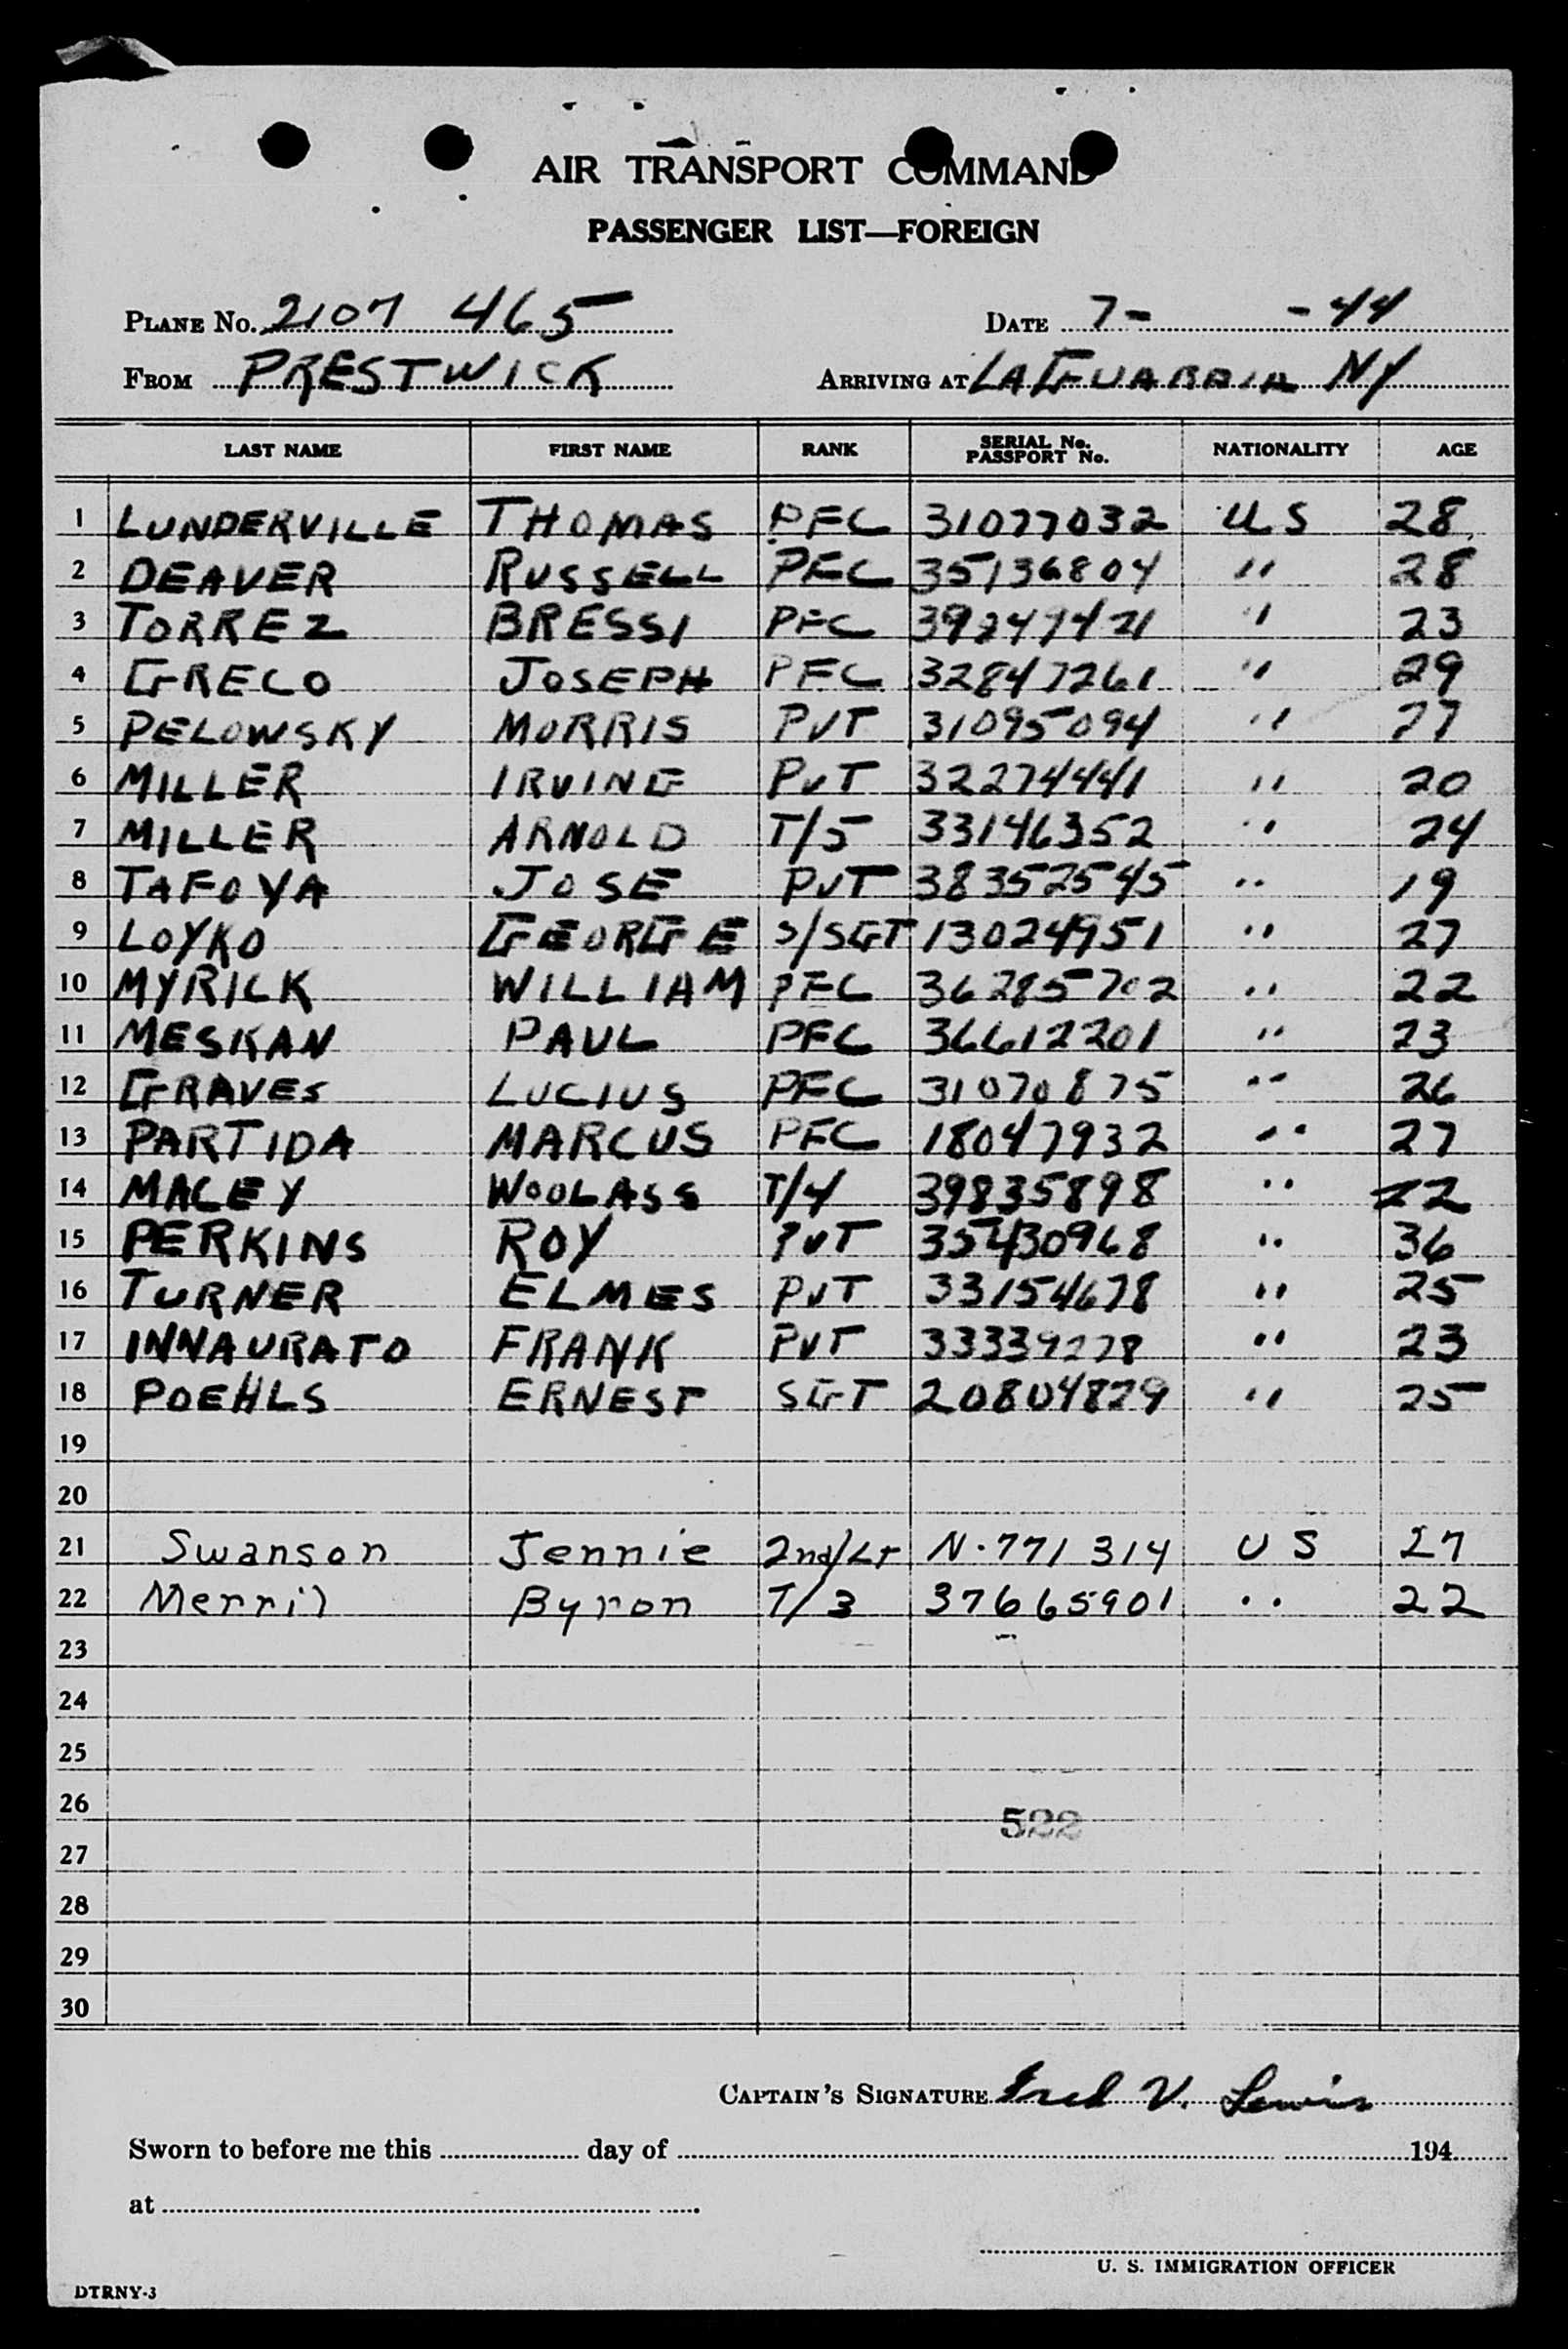 AIR TRANSPORT COMMAND
PASSENGER LIST—FOREIGN
PLANE No. 2107 465 DATE 7- -44
FROM PRESTWICK ARRIVING AT LAGUARDIA NY
LAST NAME FIRST NAME RANK SERIAL No. PASSPORT No. NATIONALITY AGE
1 LUNDERVILLE THOMAS PFC 31077032 US 28
2 DEAVER RUSSELL PFC 35136804 " 28
3 TORREZ BRESSI PFC 39247421 " 23
4 GRECO JOSEPH PFC 32847261 " 29
5 PELOWSKY MORRIS PVT 31095094 " 27
6 MILLER IRVING PVT 32274441 " 20
7 MILLER ARNOLD T/5 33146352 " 24
8 TAFOYA JOSE PVT 38352545 " 19
9 LOYKO GEORGE S/SGT 13024951 " 27
10 MYRICK WILLIAM PFC 36285702 " 22
11 MESKAN PAUL PFC 36612201 " 23
12 GRAVES LUCIUS PFC 31070875 " 26
13 PARTIDA MARCUS PFC 18047932 " 27
14 MACEY WOOLASS T/4 39835898 " 22
15 PERKINS ROY PVT 35430968 " 36
16 TURNER ELMES PVT 33154678 " 25
17 INNAURATO FRANK PVT 33339278 " 23
18 POEHLS ERNEST SGT 20804829 " 25
19
20
21 Swanson Jennie 2nd/Lt N-771314 US 27
22 Merril Byron T/3 37665901 " 22
23
24
25
26
522
27
28
29
30
CAPTAIN'S SIGNATURE Fred V. Lewis
Sworn to before me this day of 194
at
U. S. IMMIGRATION OFFICER
DTRNY-3